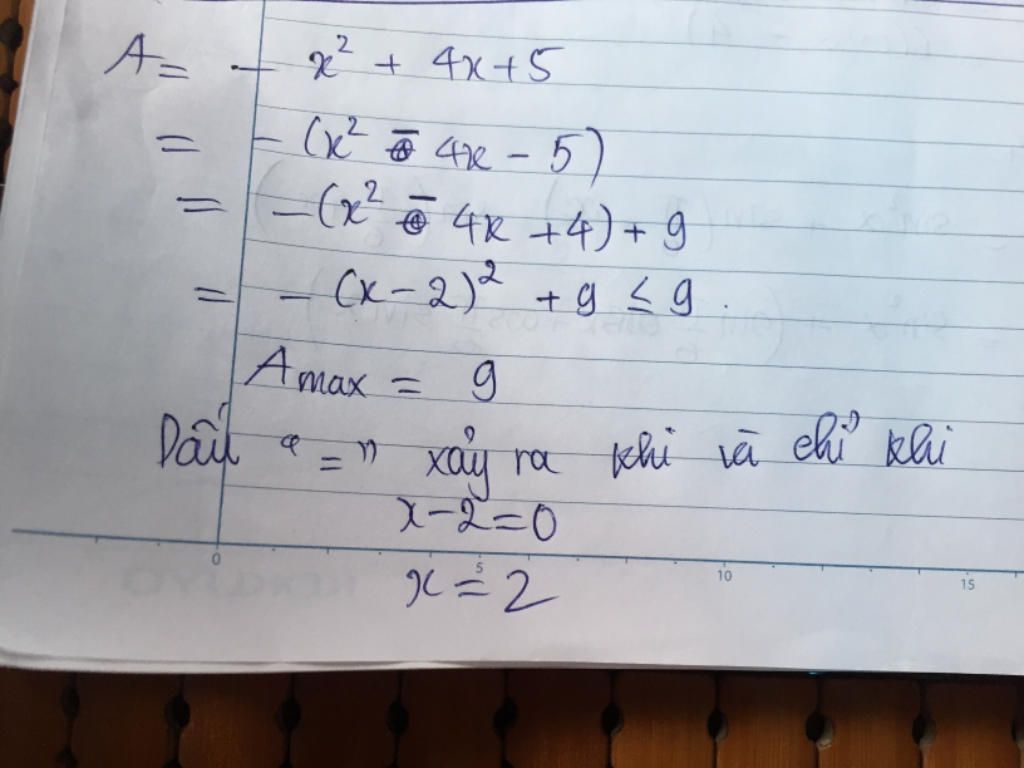 A = - x² + 4x + 5
= - (x² - 4x - 5)
= - (x² - 4x + 4) + 9
= - (x - 2)² + 9 ≤ 9.
Amax = 9
Dấu "=" xảy ra khi và chỉ khi
x - 2 = 0
0 5 10 15
x = 2